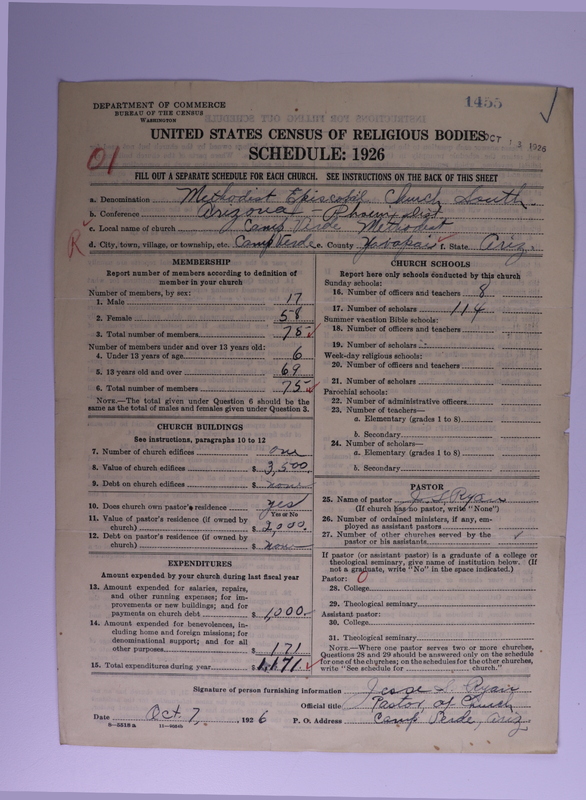 1455
DEPARTMENT OF COMMERCE
BUREAU OF THE CENSUS
WASHINGTON
UNITED STATES CENSUS OF RELIGIOUS BODIES
OCT 13 1926
01
SCHEDULE: 1926
FILL OUT A SEPARATE SCHEDULE FOR EACH CHURCH. SEE INSTRUCTIONS ON THE BACK OF THIS SHEET
a. Denomination Methodist Episcopal Church South.
b. Conference Arizona - Phoenix dist.
c. Local name of church Camp Verde Methodist
R d. City, town, village, or township, etc. Camp Verde e. County Yavapai f. State Ariz.
MEMBERSHIP
Report number of members according to definition of
member in your church
Number of members, by sex:
1. Male 17
2. Female 58
3. Total number of members 75
Number of members under and over 13 years old:
4. Under 13 years of age 6
5. 13 years old and over 69
6. Total number of members 75
NOTE.—The total given under Question 6 should be the
same as the total of males and females given under Question 3.
CHURCH BUILDINGS
See instructions, paragraphs 10 to 12
7. Number of church edifices one
8. Value of church edifices $ 3,500
9. Debt on church edifices $ none
10. Does church own pastor's residence yes
Yes or No
11. Value of pastor's residence (if owned by
church) $ 2,000.
12. Debt on pastor's residence (if owned by
church) $ none
EXPENDITURES
Amount expended by your church during last fiscal year
13. Amount expended for salaries, repairs,
and other running expenses; for im-
provements or new buildings; and for
payments on church debt $ 1,000.
14. Amount expended for benevolences, in-
cluding home and foreign missions; for
denominational support; and for all
other purposes $ 171
15. Total expenditures during year $ 1,171
CHURCH SCHOOLS
Report here only schools conducted by this church
Sunday schools:
16. Number of officers and teachers 8
17. Number of scholars 114
Summer vacation Bible schools:
18. Number of officers and teachers
19. Number of scholars
Week-day religious schools:
20. Number of officers and teachers
21. Number of scholars
Parochial schools:
22. Number of administrative officers
23. Number of teachers—
a. Elementary (grades 1 to 8)
b. Secondary
24. Number of scholars—
a. Elementary (grades 1 to 8)
b. Secondary
PASTOR
25. Name of pastor J. S. Ryan
(If church has no pastor, write "None")
26. Number of ordained ministers, if any, em-
ployed as assistant pastors
27. Number of other churches served by the
pastor or his assistants
If pastor (or assistant pastor) is a graduate of a college or
theological seminary, give name of institution below. (If
not a graduate, write "No" in the space indicated.)
Pastor: 0
28. College
29. Theological seminary
Assistant pastor:
30. College
31. Theological seminary
NOTE.—Where one pastor serves two or more churches,
Questions 28 and 29 should be answered only on the schedule
for one of the churches; on the schedules for the other churches,
write "See schedule for church."
Signature of person furnishing information Jesse S. Ryan
Official title Pastor of Church
Date Oct. 7, 1926 P. O. Address Camp Verde, Ariz